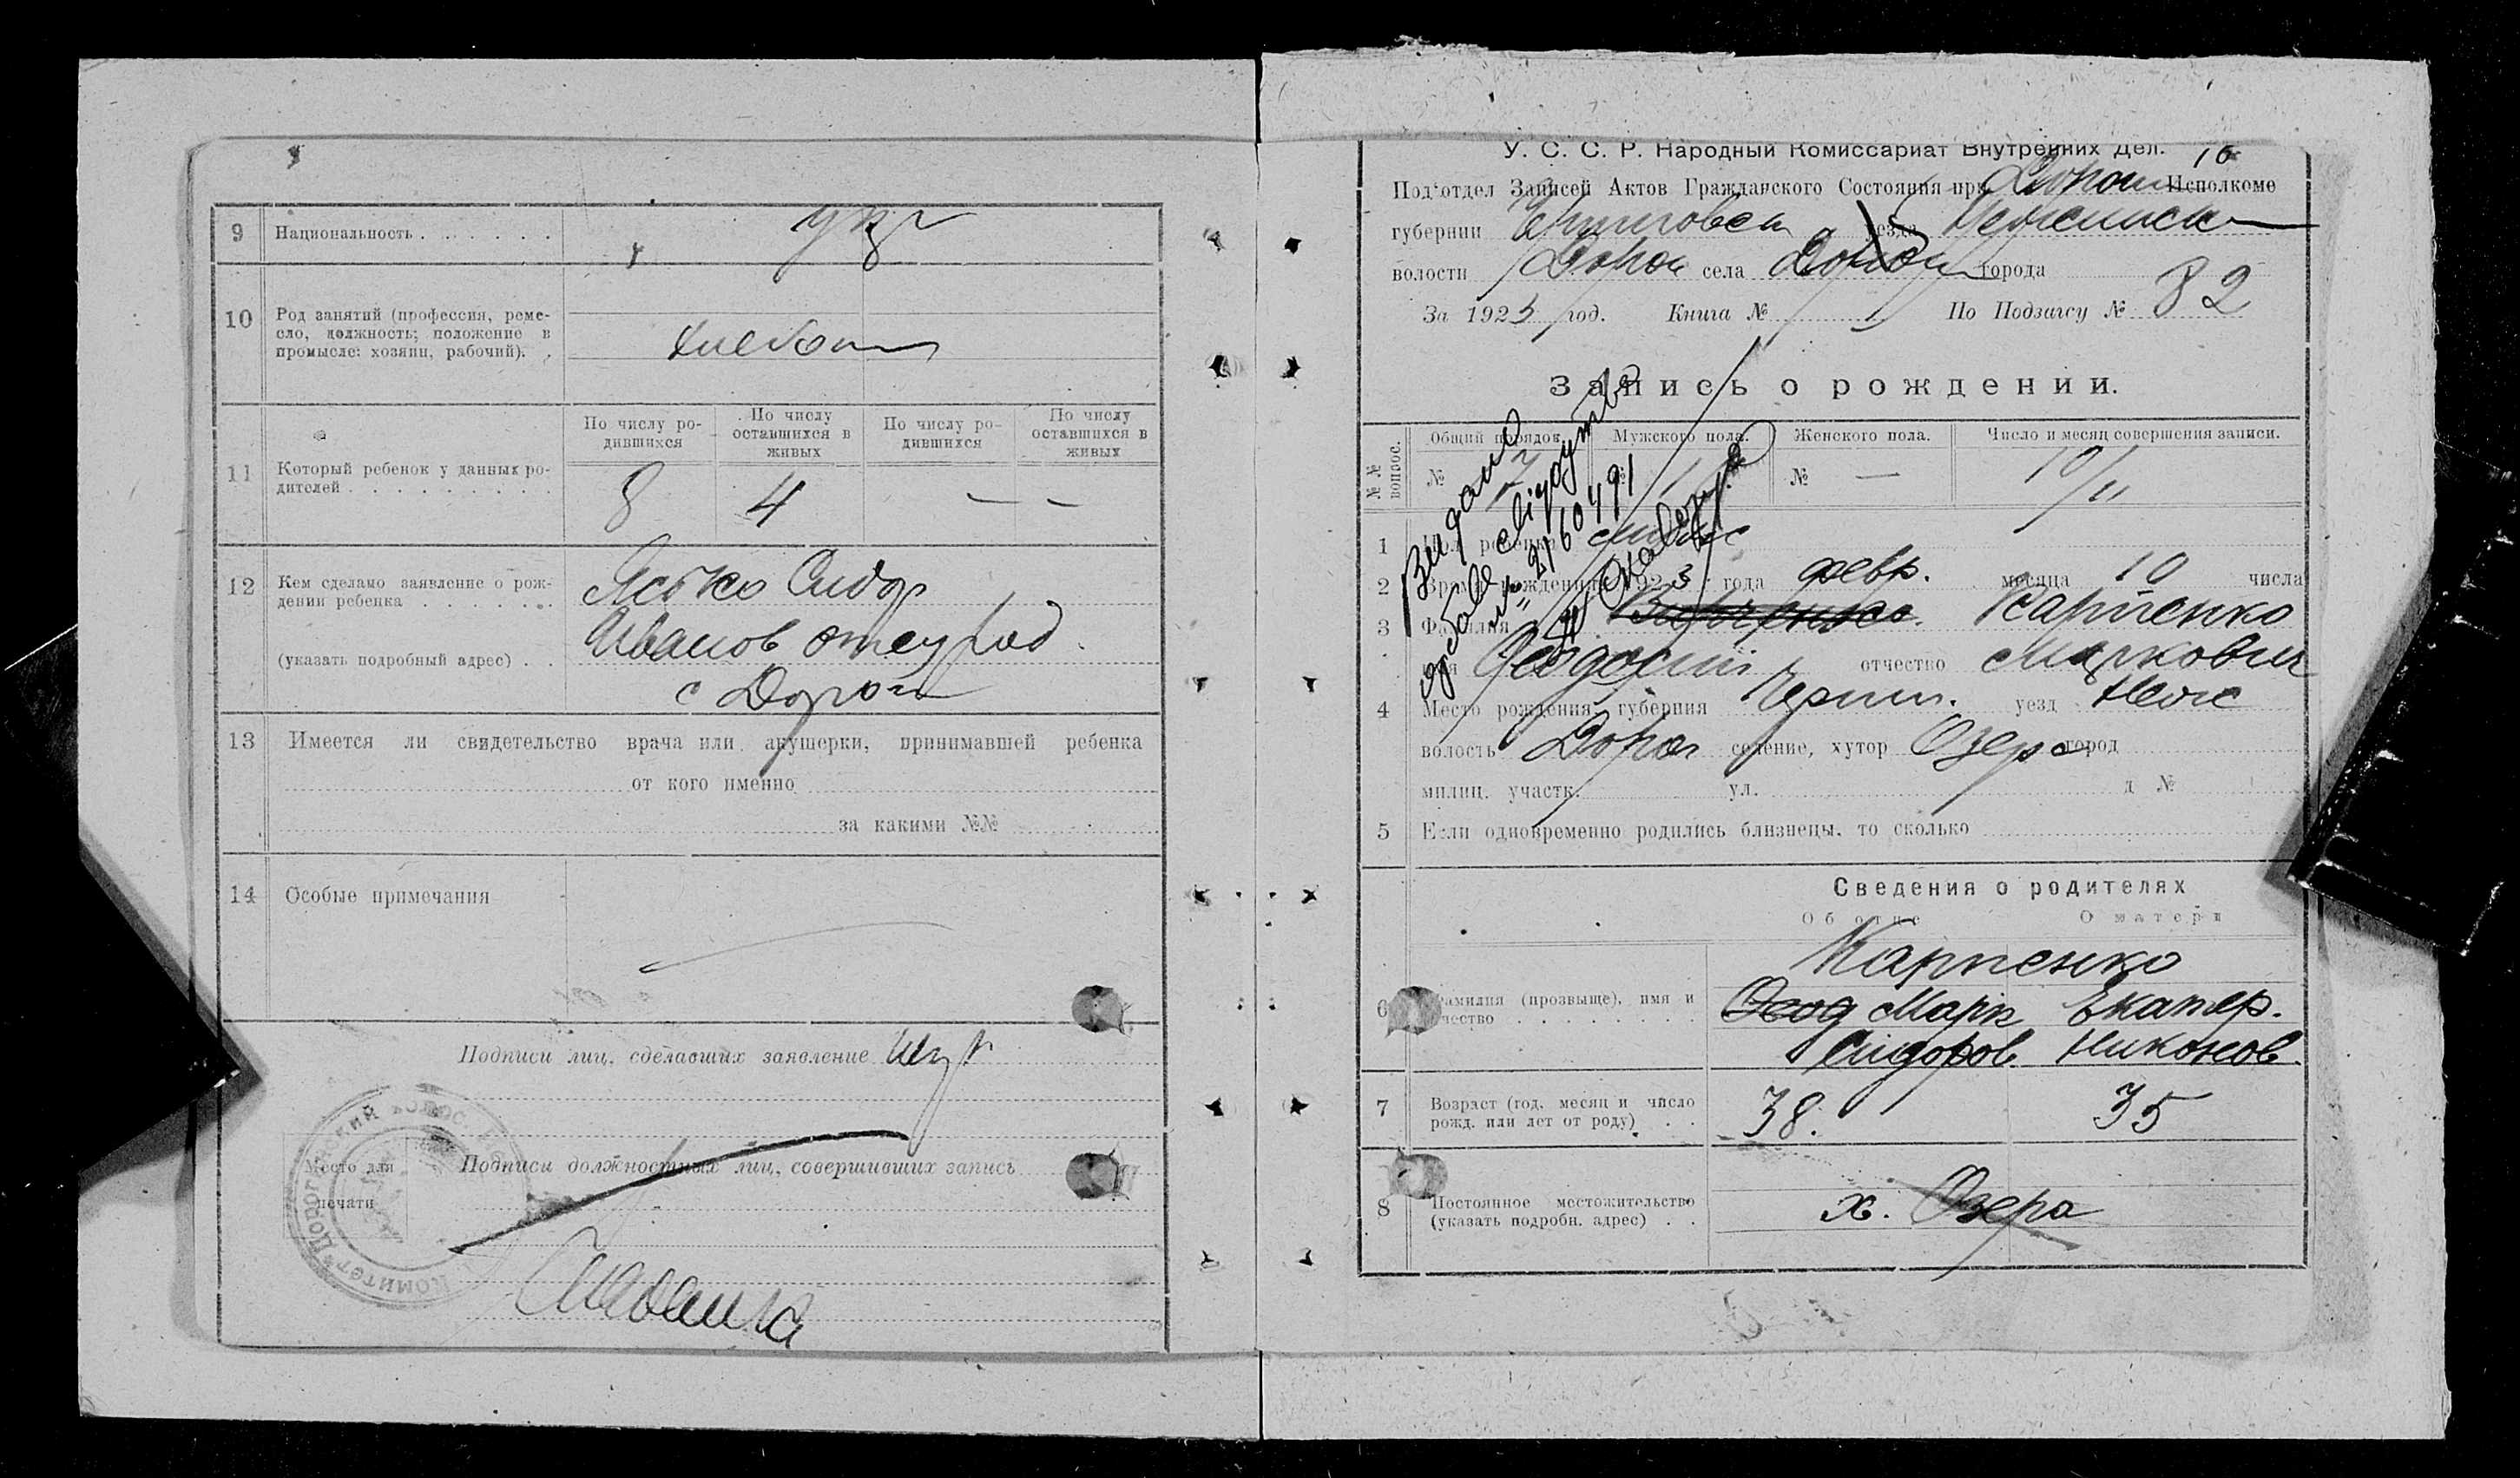 9 Национальность . . . . . . укр
10 Род занятий (профессия, реме-
сло, должность; положение в
промысле: хозяин, рабочий). .
хлебопаш
11 Который ребенок у данных ро-
дителей . . . . . . . . .
По числу ро-
дившихся
По числу
оставшихся в
живых
По числу ро-
дившихся
По числу
оставшихся в
живых
8 4 — —
12 Кем сделано заявление о рож-
дении ребенка . . . . . . .
(указать подробный адрес) . .
Сидор
Иванов отец род
с Дорог
13 Имеется ли свидетельство врача или акушерки, принимавшей ребенка
от кого именно
за какими №№
14 Особые примечания
Подписи лиц, сделавших заявление
Место для
печати
Подписи должностных лиц, совершивших запись
У. С. С. Р. Народный Комиссариат Внутренних Дел. 10
Под'отдел Записей Актов Гражданского Состояния при Дорог Исполкоме
губернии Черниговск уезда Нежинск
волости Дорог села города
За 1923 год. Книга № По Подзагсу № 82
Запись о рождении.
№№ вопрос.
Общий порядок. Мужского пола. Женского пола. Число и месяц совершения записи.
№ № № — 10/II
Видано
1 Пол ребенка
2 Время рождения 1923 года февр. месяца 10 числа
3 Фамилия Карпенко
имя Феодосий отчество Маркович
4 Место рождения: губерния Черниг. уезд Неж
волость Дорог селение, хутор Озеро город
милиц. участк. ул. д №
5 Если одновременно родились близнецы, то сколько
Сведения о родителях
Об отце О матери
6 Фамилия (прозвище), имя и
отчество . . . . . . . .
Карпенко
Феод Марк Екатер.
Сидоров Никонов
7 Возраст (год, месяц и число
рожд. или лет от роду) . .
38. 35
8 Постоянное местожительство
(указать подробн. адрес) . .
х. Озера